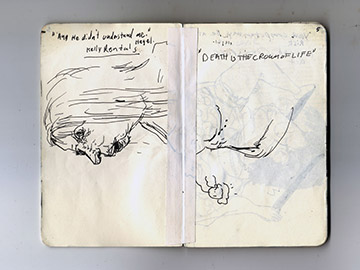 "And He didn't understand me."
Hegel.
Kelly Rentals
"DEATH IS THE CROWN OF LIFE"